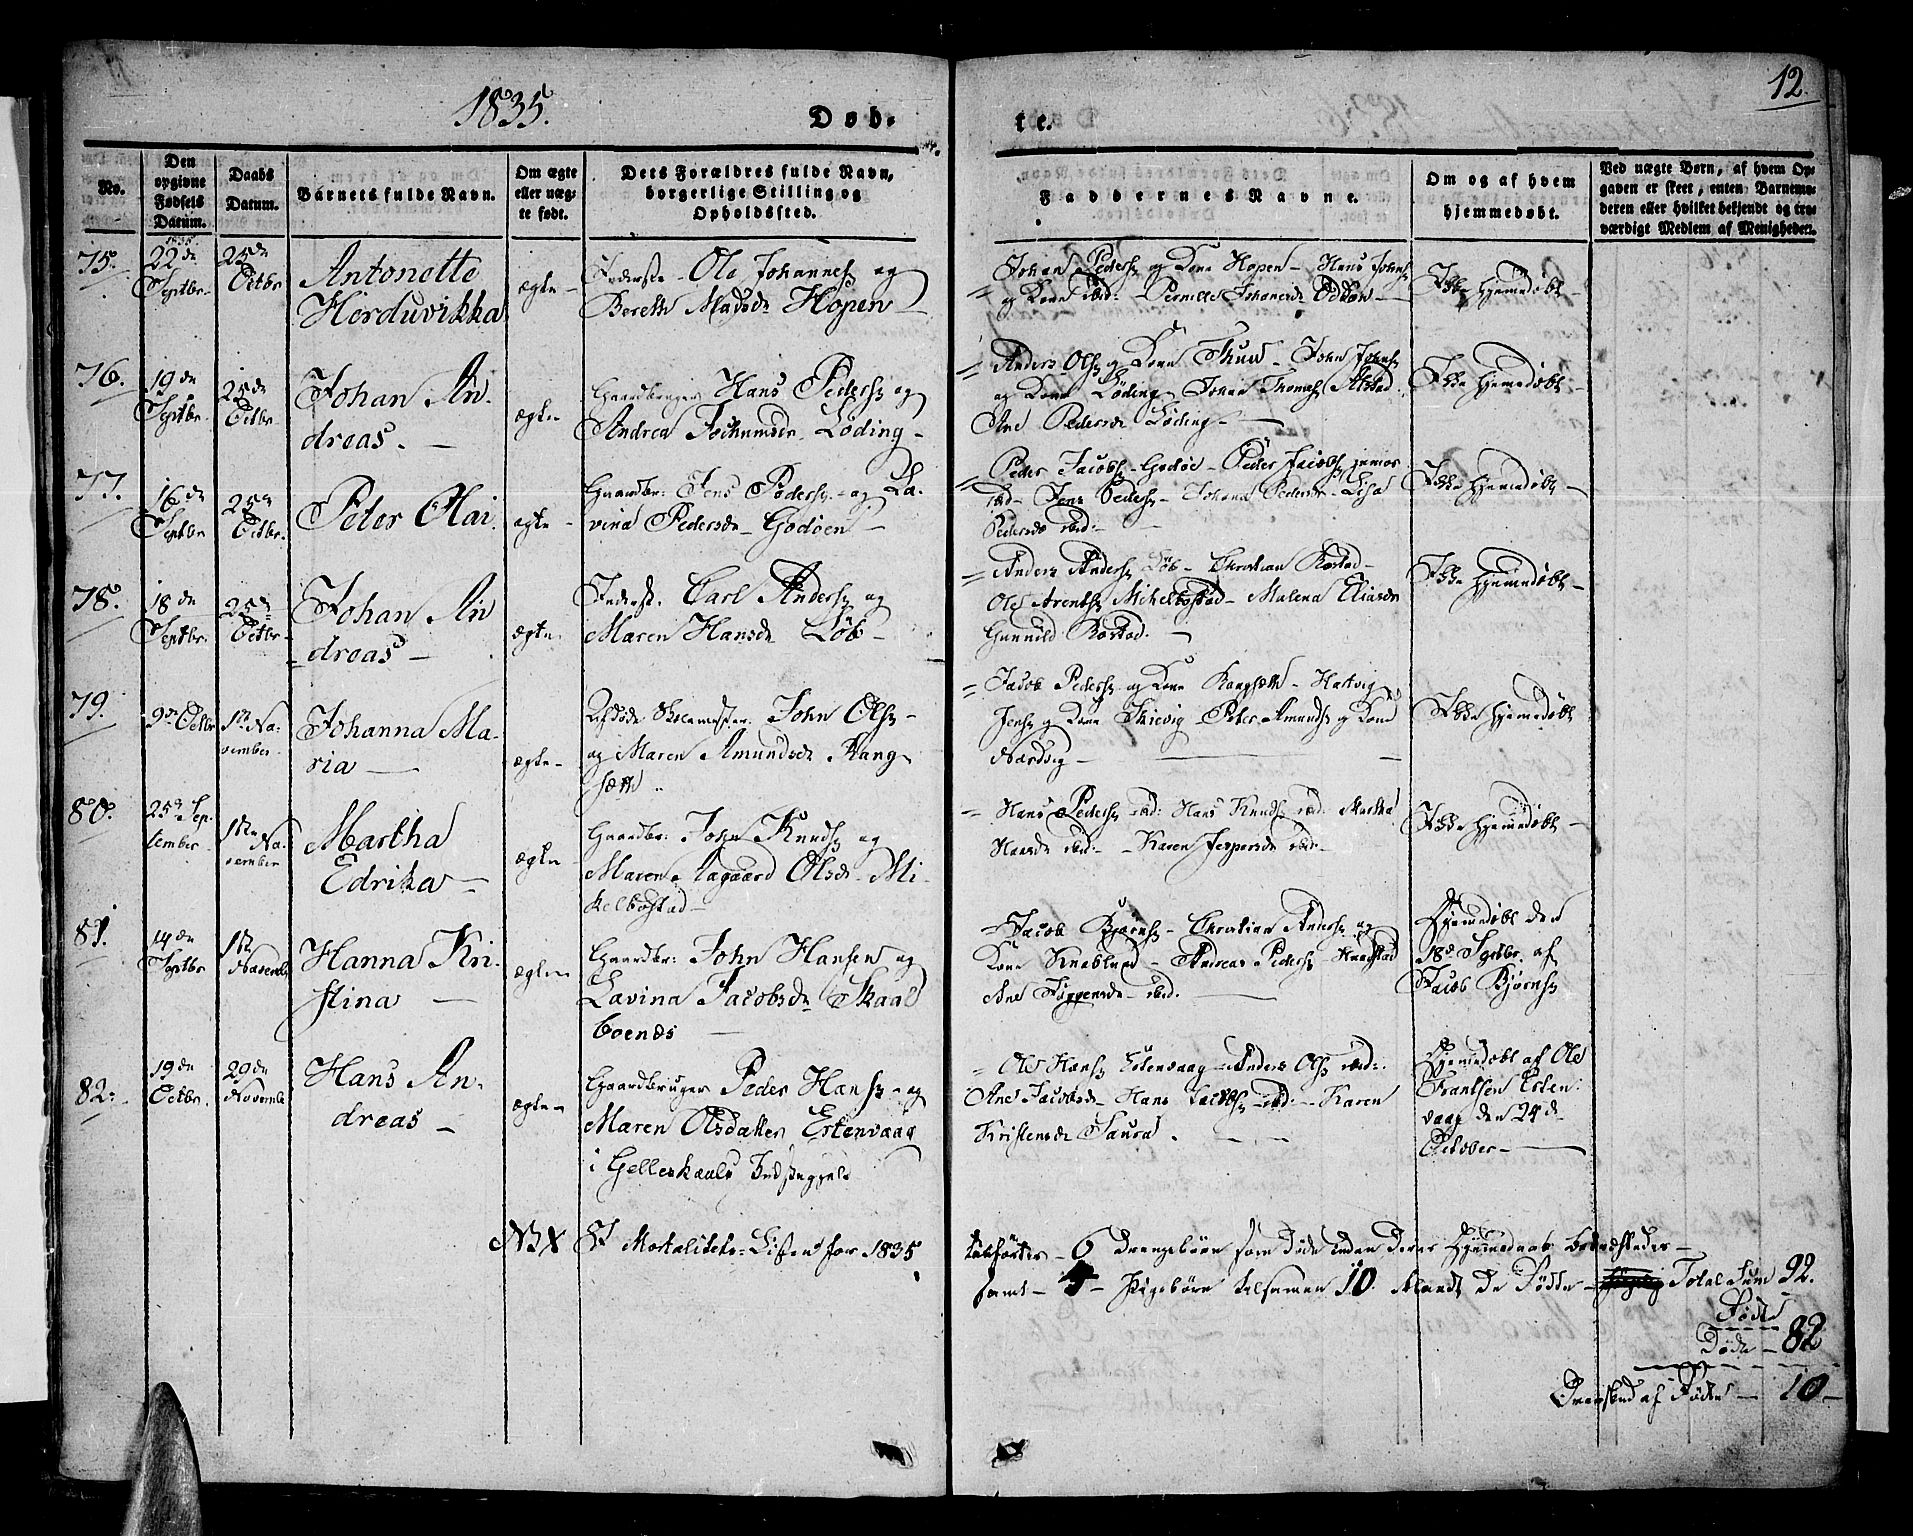 1835.
Døb-
te.
12.
No.
Den opgivne Fødsels Datum.
Daabs Datum.
Barnets fulde Navn.
Om ægte eller uægte født.
Dets Forældres fulde Navn, borgerlige Stilling og Opholdssted.
Faddernes Navne.
Om og af hvem hjemmedøbt.
Ved uægte Børn, af hvem Opgaven er skeet, enten Barnemoderen eller hvilket bekjendt og troværdigt Medlem af Menigheden.
75.
1835
22de Septbr
25de Octbr
Antonette
Horduvikka
ægte
Inderste Ole Johannes og
Bereth Madsd Hopen
Johan Peders og Kone Hopen - Hans Johns
og Kone ibd: Pernille Johansd
Ikke hjemmedøbt
76.
19de Septbr
25de Octbr
Johan An
dreas.
ægte
Gaardbruger Hans Peders og
Andrea Jochumsdr Løding
Anders Ols og Kone - John Johns
og Kone Løding - Johan Thomes Alstad
Ane Pedersd Løding
Ikke hjemmedøbt
77.
16de Septbr
25de Octbr.
Peter Olai
ægte
Gaardbr: Jens Peders og La
vina Pedersdr Godøen
Peder Jacobs Godøe - Peder Jacobs junior
ibd - Jens Peders - Johana Pedersdr - Lisa
Pedersd ibd:
Ikke hjemmedøbt
78.
18de Septbr.
25de Octbr
Johan An
dreas
ægte
Inderst. Carl Anders og
Maren Hansdr Løb
Anders Anders Løb - Christian
Ole Arents Mikelbostad - Malena Eliasdr
Gunnild
Ikke hjemmedøbt
79.
9de Octbr
1ste November
Johanna Ma-
ria
ægte
Afdøde Skolemester John Ols
og Maren Amundsdr Kang
sæth
Jacob Peders og Kone Kangsæth - Hartvig
Jens og Kone - Peter Amunds og Kone
Ikke hjemmedøbt
80.
25de September
1ste November
Martha
Edrika
ægte
Gaardbr: John Knuds og
Maren Aagaard Olsdr Mi
kelbostad
Hans Peders ibd: Hans Knuds ibd: Martha
Hansdr ibd: Karen Jespersdr ibd
Ikke hjemmedøbt
81.
14de Septbr
1ste Novemb
Hanna Kri-
stina
ægte
Gaardbr: John Hansen og
Lavina Jacobsdr Skaal
boenes
Jacob Bjørns - Christian Anders og
Kone Knablund - Andreas Peders
Ane ibd.
Hjemmedøbt den
18de Septbr. af
Jacob Bjørns
82.
19de Octbr.
29de Novemb
Hans An-
dreas
ægte
Gaardbruger Peder Hans og
Maren Olsdatter Ertenvaag
i Gelleskaals
Ole Hans Ertenvaag Anders Ols ibd:
Ane Jacobsdr Hans Jacobs ibd: Karen
Kristensdr Saura.
Hjemmedøbt af Ole
Frantsen Erten-
vaag den 24de
October
NB X
Mortalitets-Listen for 1835
tilførtes 6 Drengebørn som døde inden deres Hjemmedaab
samt 4 Pigebørn tilsamen 10 iblandt de Fødte Total Sum 92.
Fødte
Døde 82
Overskud af Fødte 10